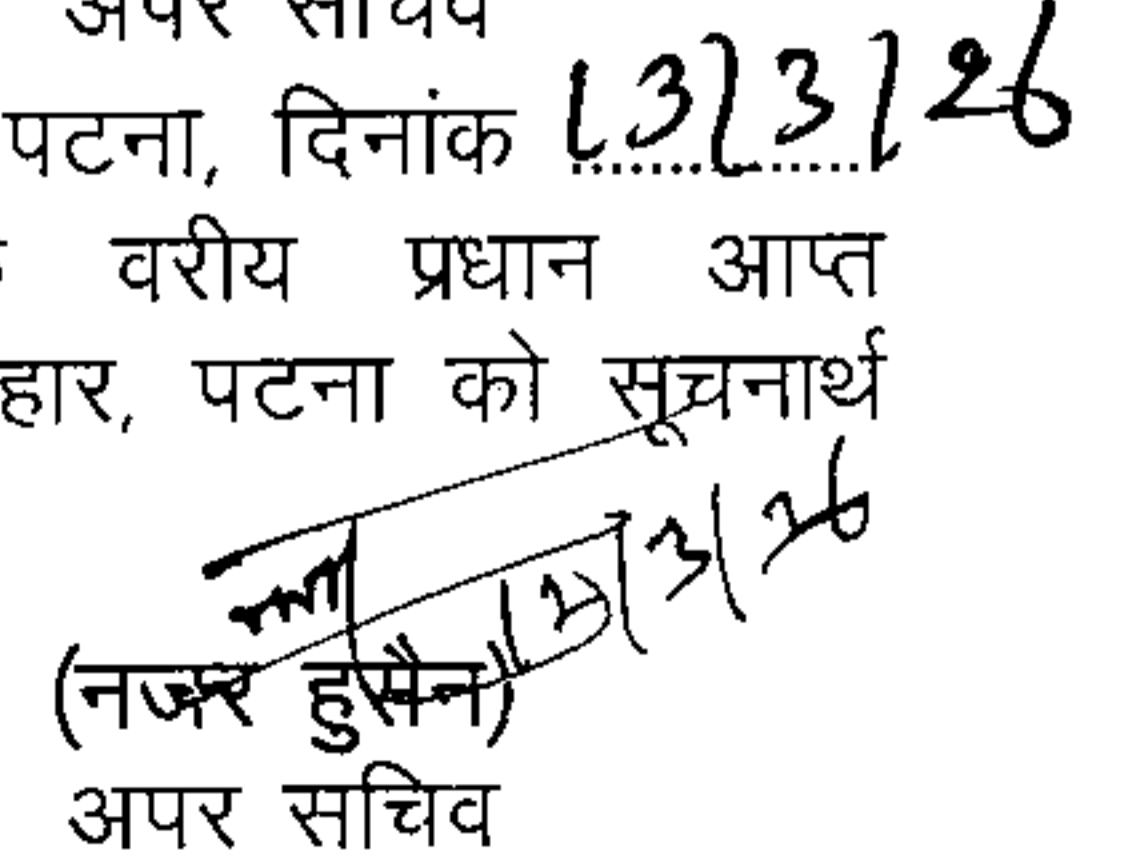 अपर सचिव
पटना, दिनांक 13/3/26
वरीय प्रधान आप्त
हार, पटना को सूचनार्थ
13/3/26
(नजर हुसैन)
अपर सचिव